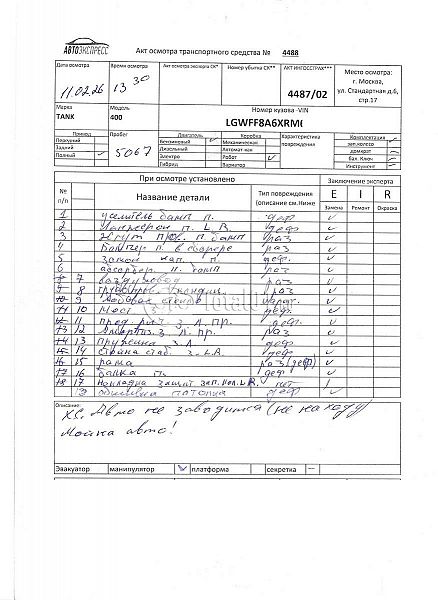 АВТОЭКСПРЕСС
Акт осмотра транспортного средства № 4488
Дата осмотра
11.02.26
Время осмотра
13 30
Акт осмотра эксперта СК*
Номер убытка СК**
АКТ ИНГОССТРАХ***
4487/02
Место осмотра:
г. Москва,
ул. Стандартная д.6,
стр.17
Марка
TANK
Модель
400
Номер кузова -VIN
LGWFF8A6XRM
Привод
Передний
Задний
Полный
Пробег
5067
Двигатель
Бензиновый
Дизельный
Электро
Гибрид
Коробка
Механическая
Автомат-кая
Робот
Вариатор
Характеристика повреждения
Комплектация
зап.колесо
домкрат
бал. Ключ
Инструмент
№ п/п
При осмотре установлено
Заключение эксперта
Название детали
Тип повреждения
(описание см.Ниже
E I R
Замена Ремонт Окраска
1 усилитель бамп п. деф
2 Лонжерон п. L.R. деф
3 п. бамп раз
4 Бампер п. в сборе раз
5 Замок кап. п. деф.
6 абсорбер п. бамп раз
7 Воздуховод раз
8 раз
9 Лобовое стекло
10 Мост деф.
11 з. Л. ПР. деф.
12 Амортиз. з Л. ПР. раз
13 Пружина з. Л деф
14 Стойка стаб. з. L.R. деф
15 рама раз (деф)
16 балка п. деф
17 Накладка L.R. нет
потолка деф
Описание:
Х.С. Авто не заводится (не на ходу)
Мойка авто!
Эвакуатор манипулятор платформа секретка